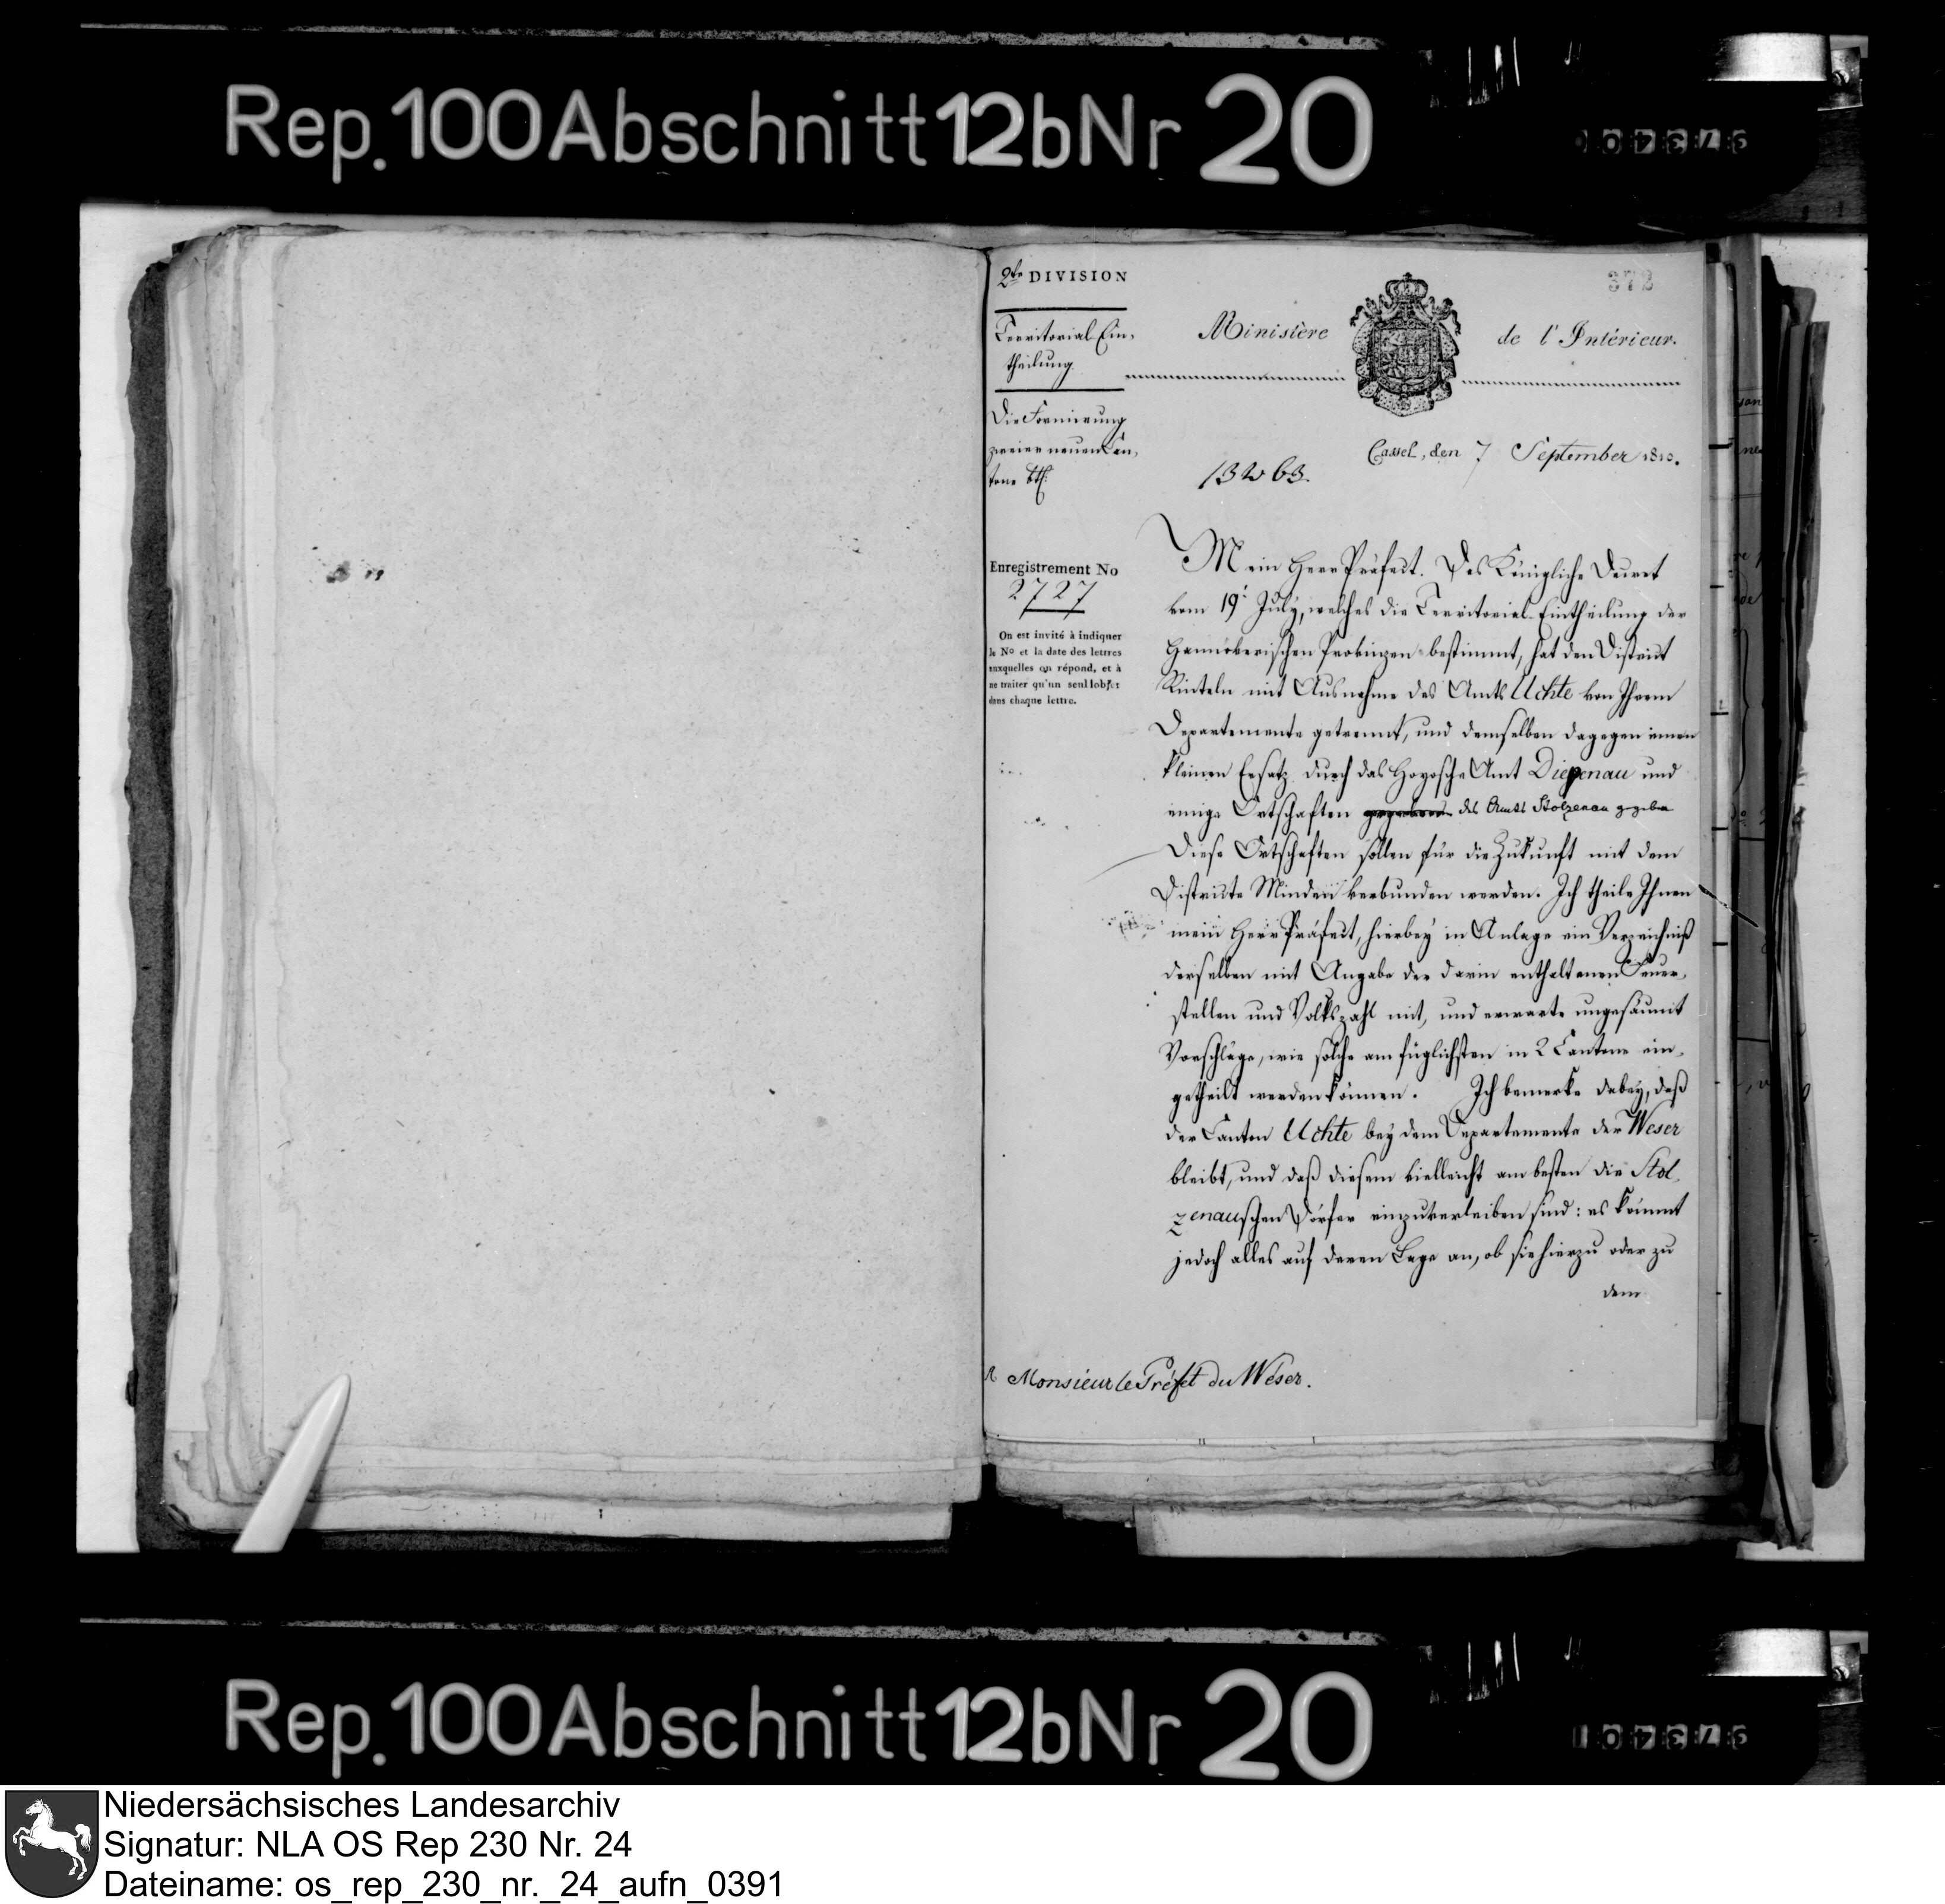 Rep. 100 Abschnitt 12b Nr 20
372
2te DIVISION
Territorial-Ein-
theilung.
Ministère de l'Intérieur.
Die Formierung
zweier neuen Can-
tone btf:
Cassel, den 7 September 1810.
13263.
Enregistrement No
2727
On est invité à indiquer
le No et la date des lettres
auxquelles on répond, et à
ne traiter qu'un seul objet
dans chaque lettre.
Mein Herr Präfect. Das Königliche Decret
vom 19t July, welches die Territorial-Eintheilung der
Hannöverischen Provinzen bestimmt, hat den District
Rinteln mit Ausnahme des Amts Uchte von Ihrem
Departemente getrennt, und demselben dagegen einen
kleinen Ersatz durch das Hoyosche Amt Diepenau und
einige Ortschaften des Amts Stolzenau gegeben
Diese Ortschaften sollen für die Zukunft mit dem
Districte Minden verbunden werden. Ich theile Ihnen
mein Herr Präfect, hierbey in Anlage ein Verzeichniß
derselben mit Angabe der darin enthaltenen Feuer-
stellen und Volkszahl mit, und erwarte ungesäumt
Vorschläge, wie solche am füglichsten in 2 Cantone ein-
getheilt werden können. Ich bemerke dabey, daß
der Canton Uchte bey dem Departemente der Weser
bleibt, und daß diesem vielleicht am besten die Stol-
zenauschen Dörfer einzuverleiben sind: es kömmt
jedoch alles auf deren Lage an, ob sie hierzu oder zu
dem
A Monsieur le Préfet du Weser.
Rep. 100 Abschnitt 12b Nr 20
Niedersächsisches Landesarchiv
Signatur: NLA OS Rep 230 Nr. 24
Dateiname: os_rep_230_nr._24_aufn_0391